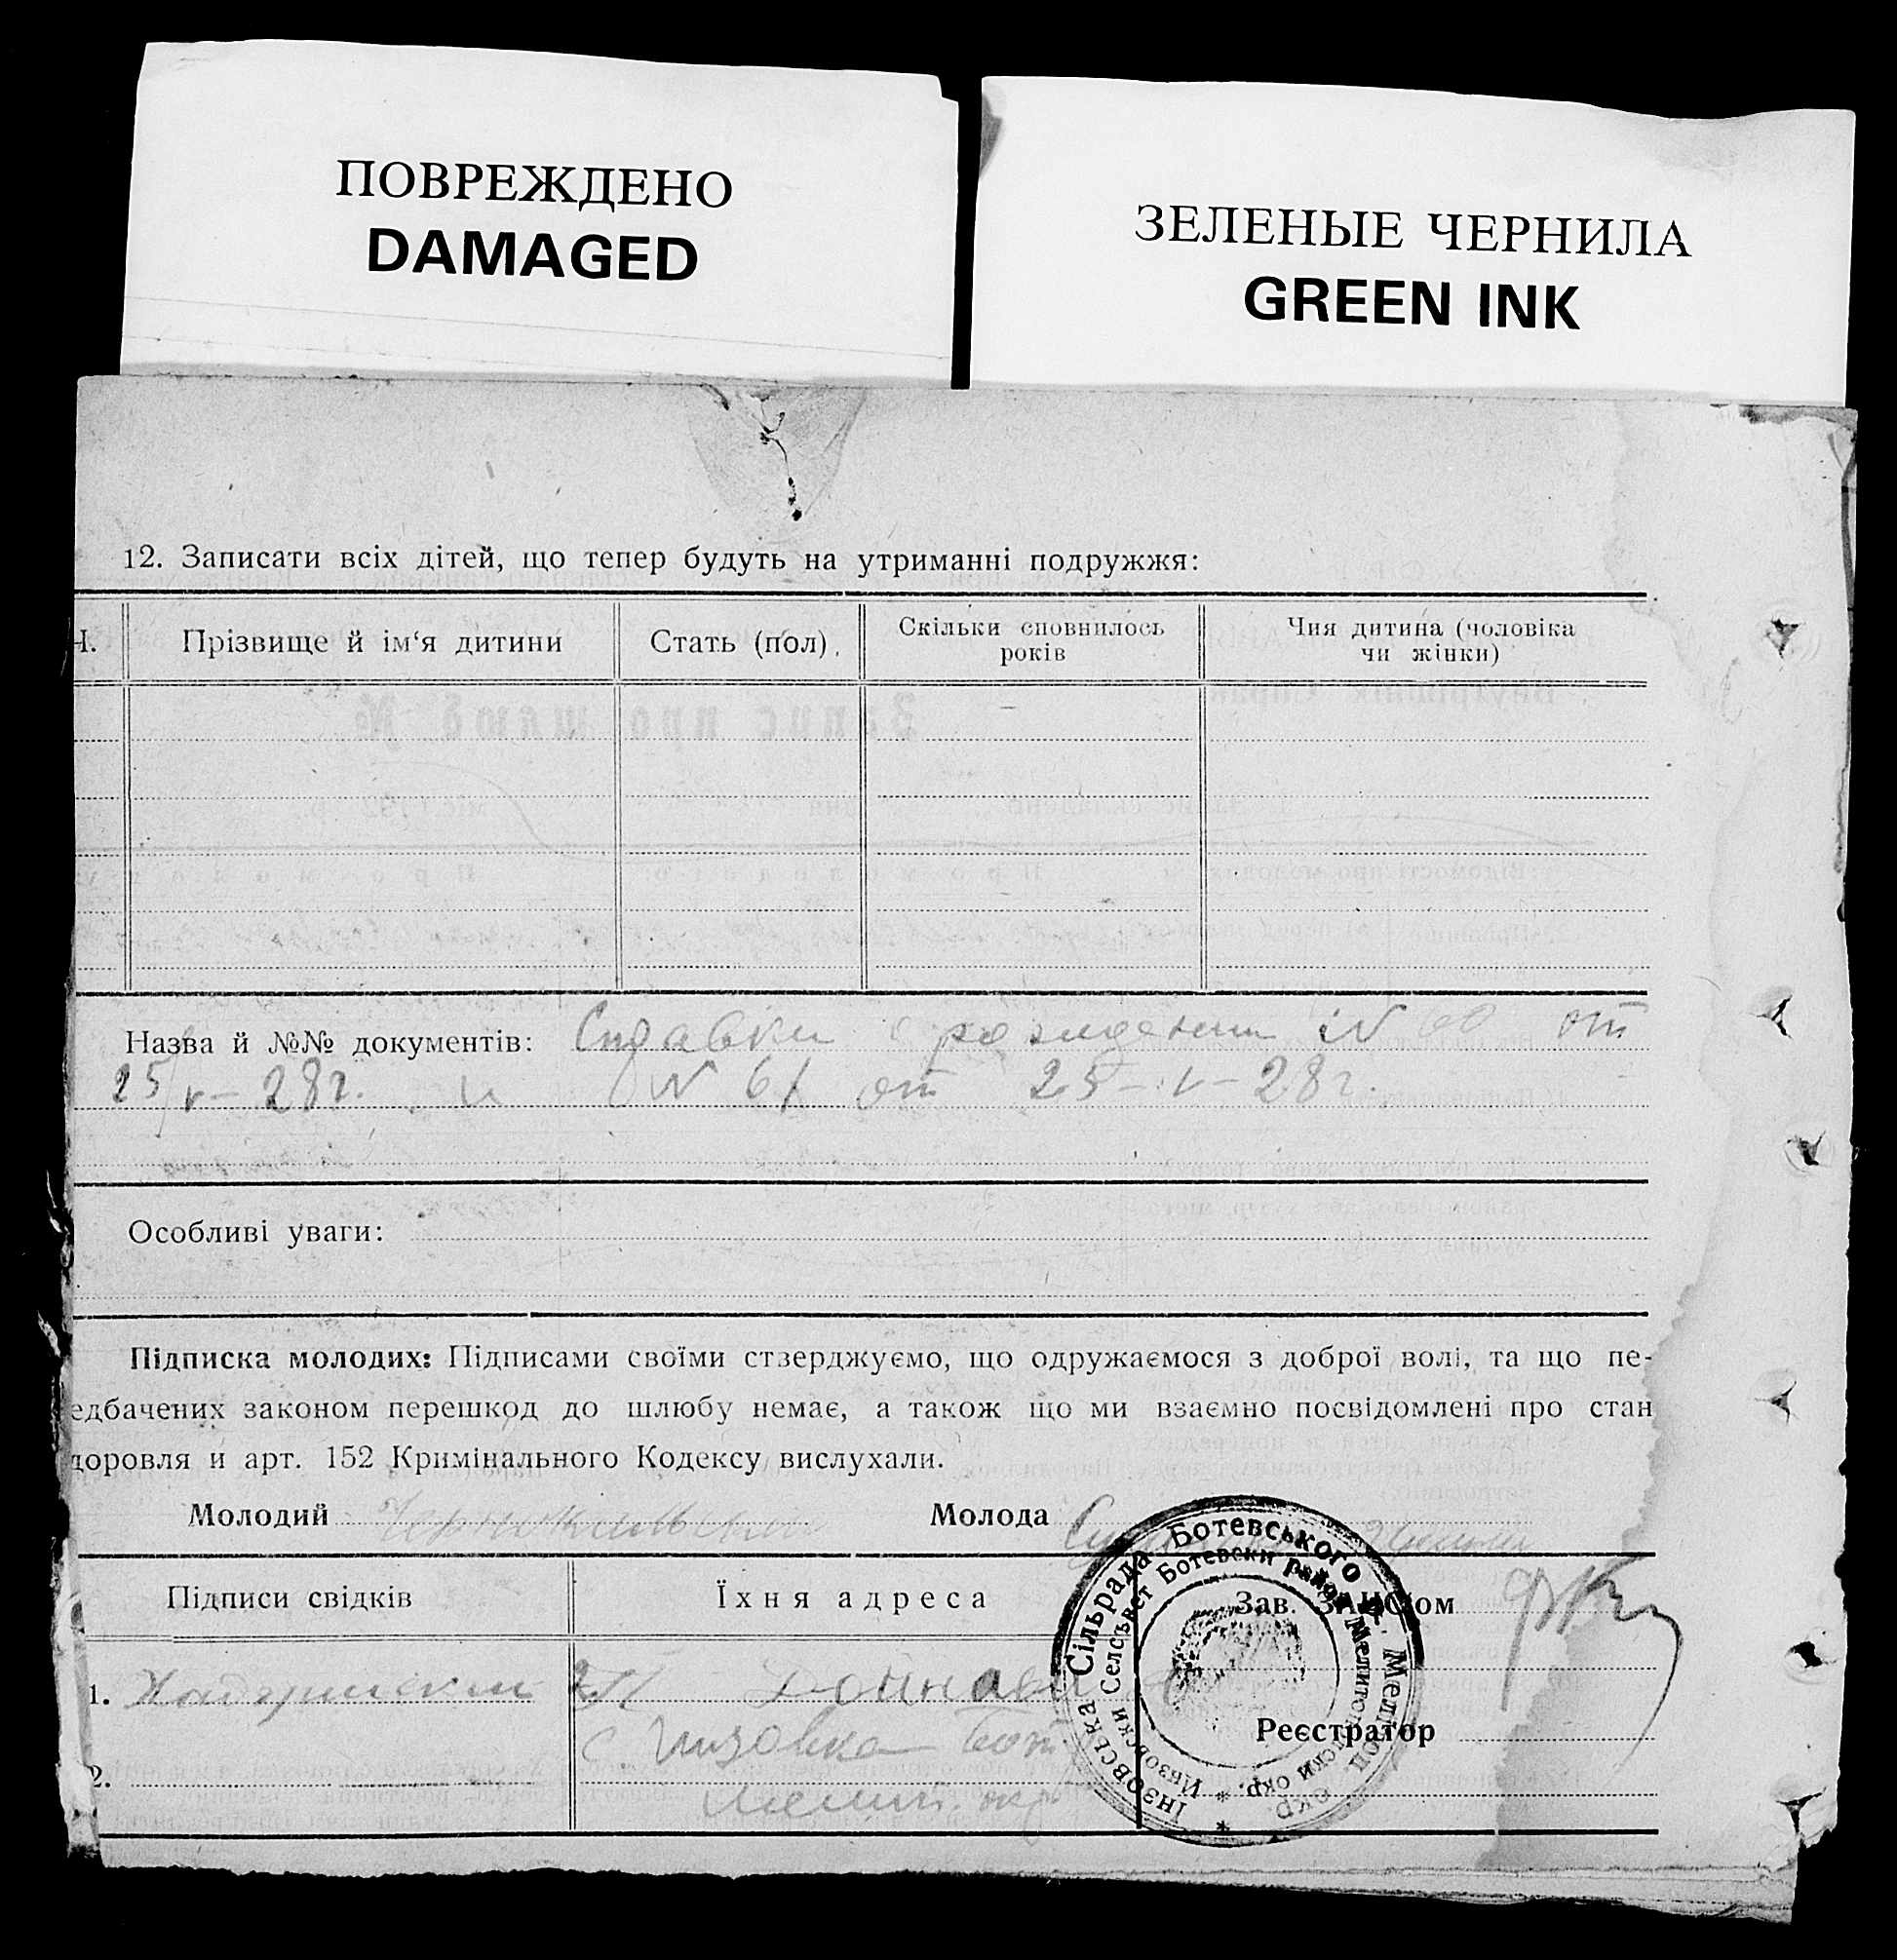 ПОВРЕЖДЕНО
DAMAGED
ЗЕЛЕНЫЕ ЧЕРНИЛА
GREEN INK
12. Записати всіх дітей, що тепер будуть на утриманні подружжя:
Ч.
Прізвище й ім'я дитини
Стать (пол).
Скільки сповнилось
років
Чия дитина (чоловіка
чи жінки)
Назва й №№ документів: Справки о рождении N 60 от
25/V – 28 г. и N 61 от 25–V–28 г.
Особливі уваги:
Підписка молодих: Підписами своїми стверджуємо, що одружаємося з доброї волі, та що пе-
едбачених законом перешкод до шлюбу немає, а також що ми взаємно посвідомлені про стан
доровля и арт. 152 Кримінального Кодексу вислухали.
Молодий
Молода
Підписи свідків
Їхня адреса
Зав. ЗАГС'ом
1.
с. Инзовка Бот.
Реєстратор
2.
Мелит. окр.
Інзовська Сільрада Ботевського р. Мелітоп. окр. *
Инзовски Селсъвет Ботевски район Мелитополски окр. *